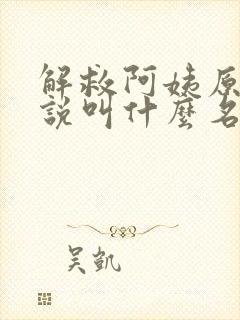 解救阿姨原
說叫什麼名
吴凱